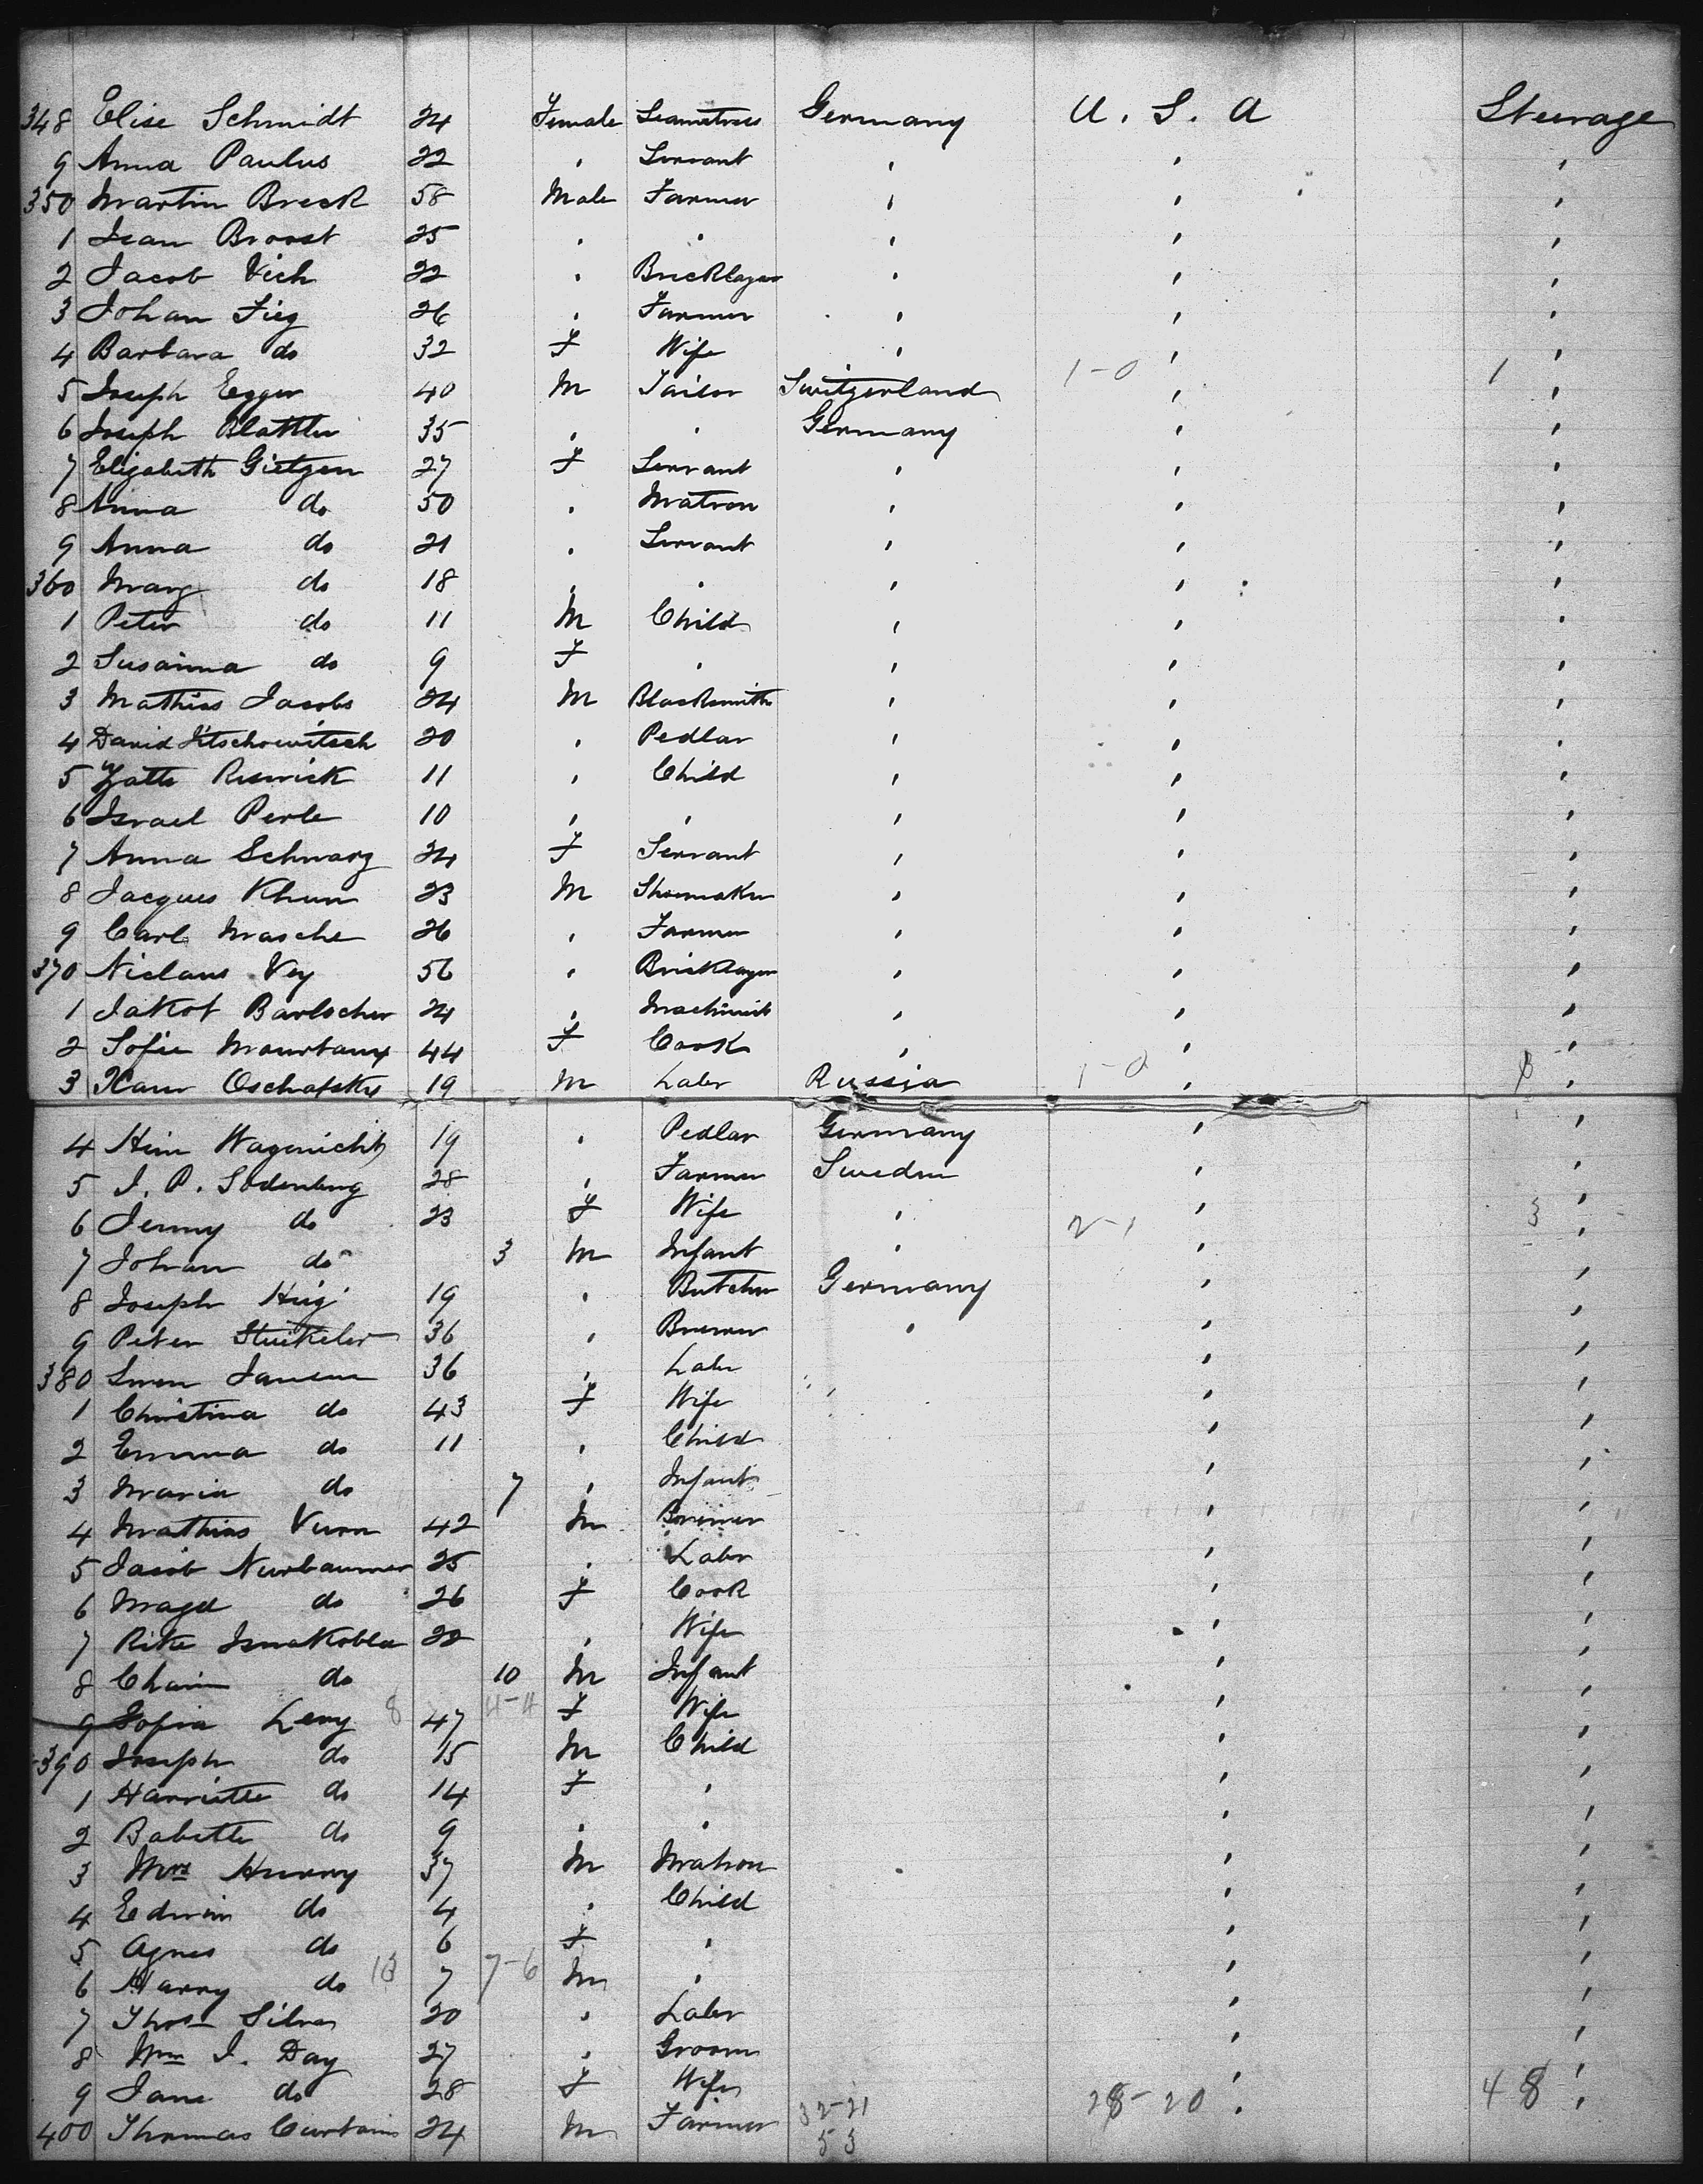 348 Elise Schmidt 24 Female Seamstress Germany U. S. A Steerage
9 Anna Paulus 22 , Servant , , ,
350 Martin Breck 58 Male Farmer , , ,
1 Jean Broost 25 , , , , ,
2 Jacob Vich 22 , Bricklayer , , ,
3 Johan Fieg 26 , Farmer , , ,
4 Barbara do 32 F Wife , , ,
1-0 1
5 Joseph Egger 40 M Tailor Switzerland , ,
6 Joseph Blattler 35 , , Germany , ,
7 Elizabeth Gietzen 27 F Servant , , ,
8 Anna do 50 , Matron , , ,
9 Anna do 21 , Servant , , ,
360 Marg do 18 , , , , ,
1 Peter do 11 M Child , , ,
2 Susanna do 9 F , , , ,
3 Mathias Jacobs 24 M Blacksmith , , ,
4 David 20 , Pedlar , , ,
5 11 , Child , , ,
6 Israel Perle 10 , , , , ,
7 Anna Schwarz 24 F Servant , , ,
8 Jacques Khun 23 M Shoemaker , , ,
9 Carl Masche 26 , Farmer , , ,
370 Niclaus Vey 56 , Bricklayer , , ,
1 Jakob Barlocher 24 , Machinist , , ,
2 Sofie 44 F Cook , , ,
3 Oschafsky 19 M Labr Russia 1-0 , ,
4 19 , Pedlar Germany , ,
5 J. P. Soderberg 28 , Farmer Sweden , ,
6 Jenny do 23 F Wife , 2-1 , 3 ,
7 Johan do 3 M Infant , , ,
8 Joseph Hug 19 , Butcher Germany , ,
9 Peter 36 , Brewer , , ,
380 Swen Jansen 36 , Labr , , ,
1 Christina do 43 F Wife , ,
2 Emma do 11 , Child , ,
3 Maria do 7 , Infant , ,
4 Mathias 42 M Brewer , ,
5 Jacob Nurbaumer 25 , Labr , ,
6 Magd do 26 F Cook , ,
7 Rike 22 , Wife , ,
8 Chaim do 10 M Infant , ,
9 Sofia Levy 8 47 4-4 F Wife , ,
390 Joseph do 15 M Child , ,
1 Harriette do 14 F , , ,
2 Babette do 9 , , , ,
3 Mrs Hurry 37 M Matron , ,
4 Edwin do 4 , Child , ,
5 Agnes do 6 F , , ,
6 Harry do 13 7 7-6 M , , ,
7 Thos Silver 20 , Labr , ,
8 Wm J. Day 27 , Groom , ,
9 Jane do 28 F Wife , ,
400 Thomas Curtain 24 M Farmer 32-21 28-20 , 48 ,
53